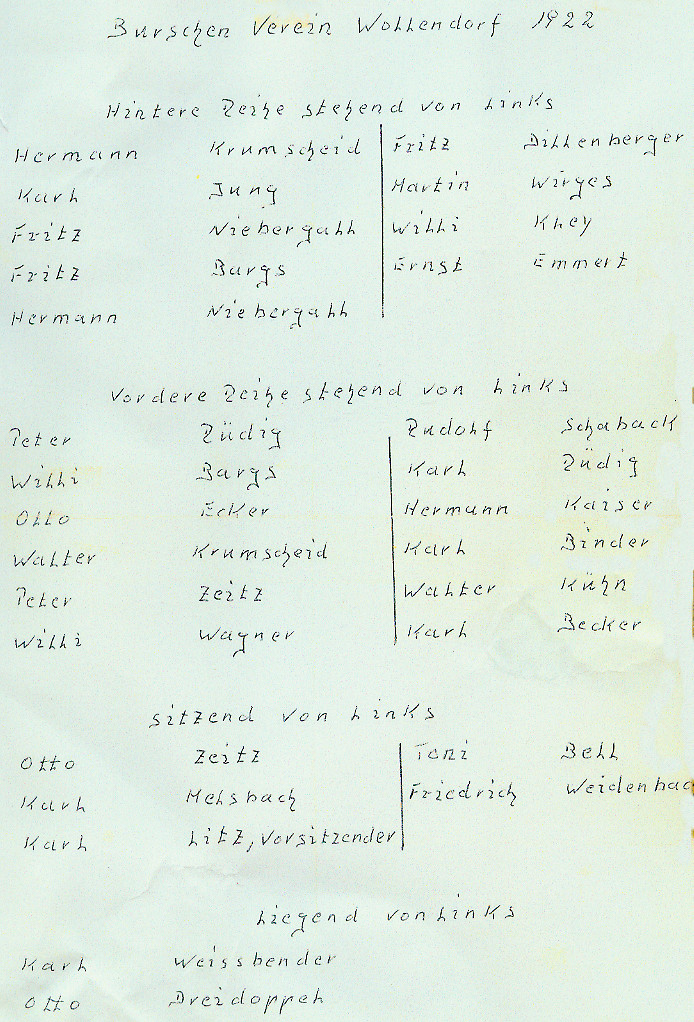 Burschen Verein Wollendorf 1922
Hintere Reihe stehend von links
Hermann Krumscheid
Karl Jung
Fritz Niebergall
Fritz Bargs
Hermann Niebergall
Fritz Dillenberger
Martin Wirges
Willi Kley
Ernst Emmert
Vordere Reihe stehend von links
Peter Rüdig
Willi Bargs
Otto Ecker
Walter Krumscheid
Peter Zeitz
Willi Wagner
Rudolf Schaback
Karl Rüdig
Hermann Kaiser
Karl Binder
Walter Kühn
Karl Becker
sitzend von links
Otto Zeitz
Karl Melsbach
Karl Litz, Vorsitzender
Toni Bell
Friedrich Weidenbac
Liegend von links
Karl Weissbender
Otto Dreidoppel